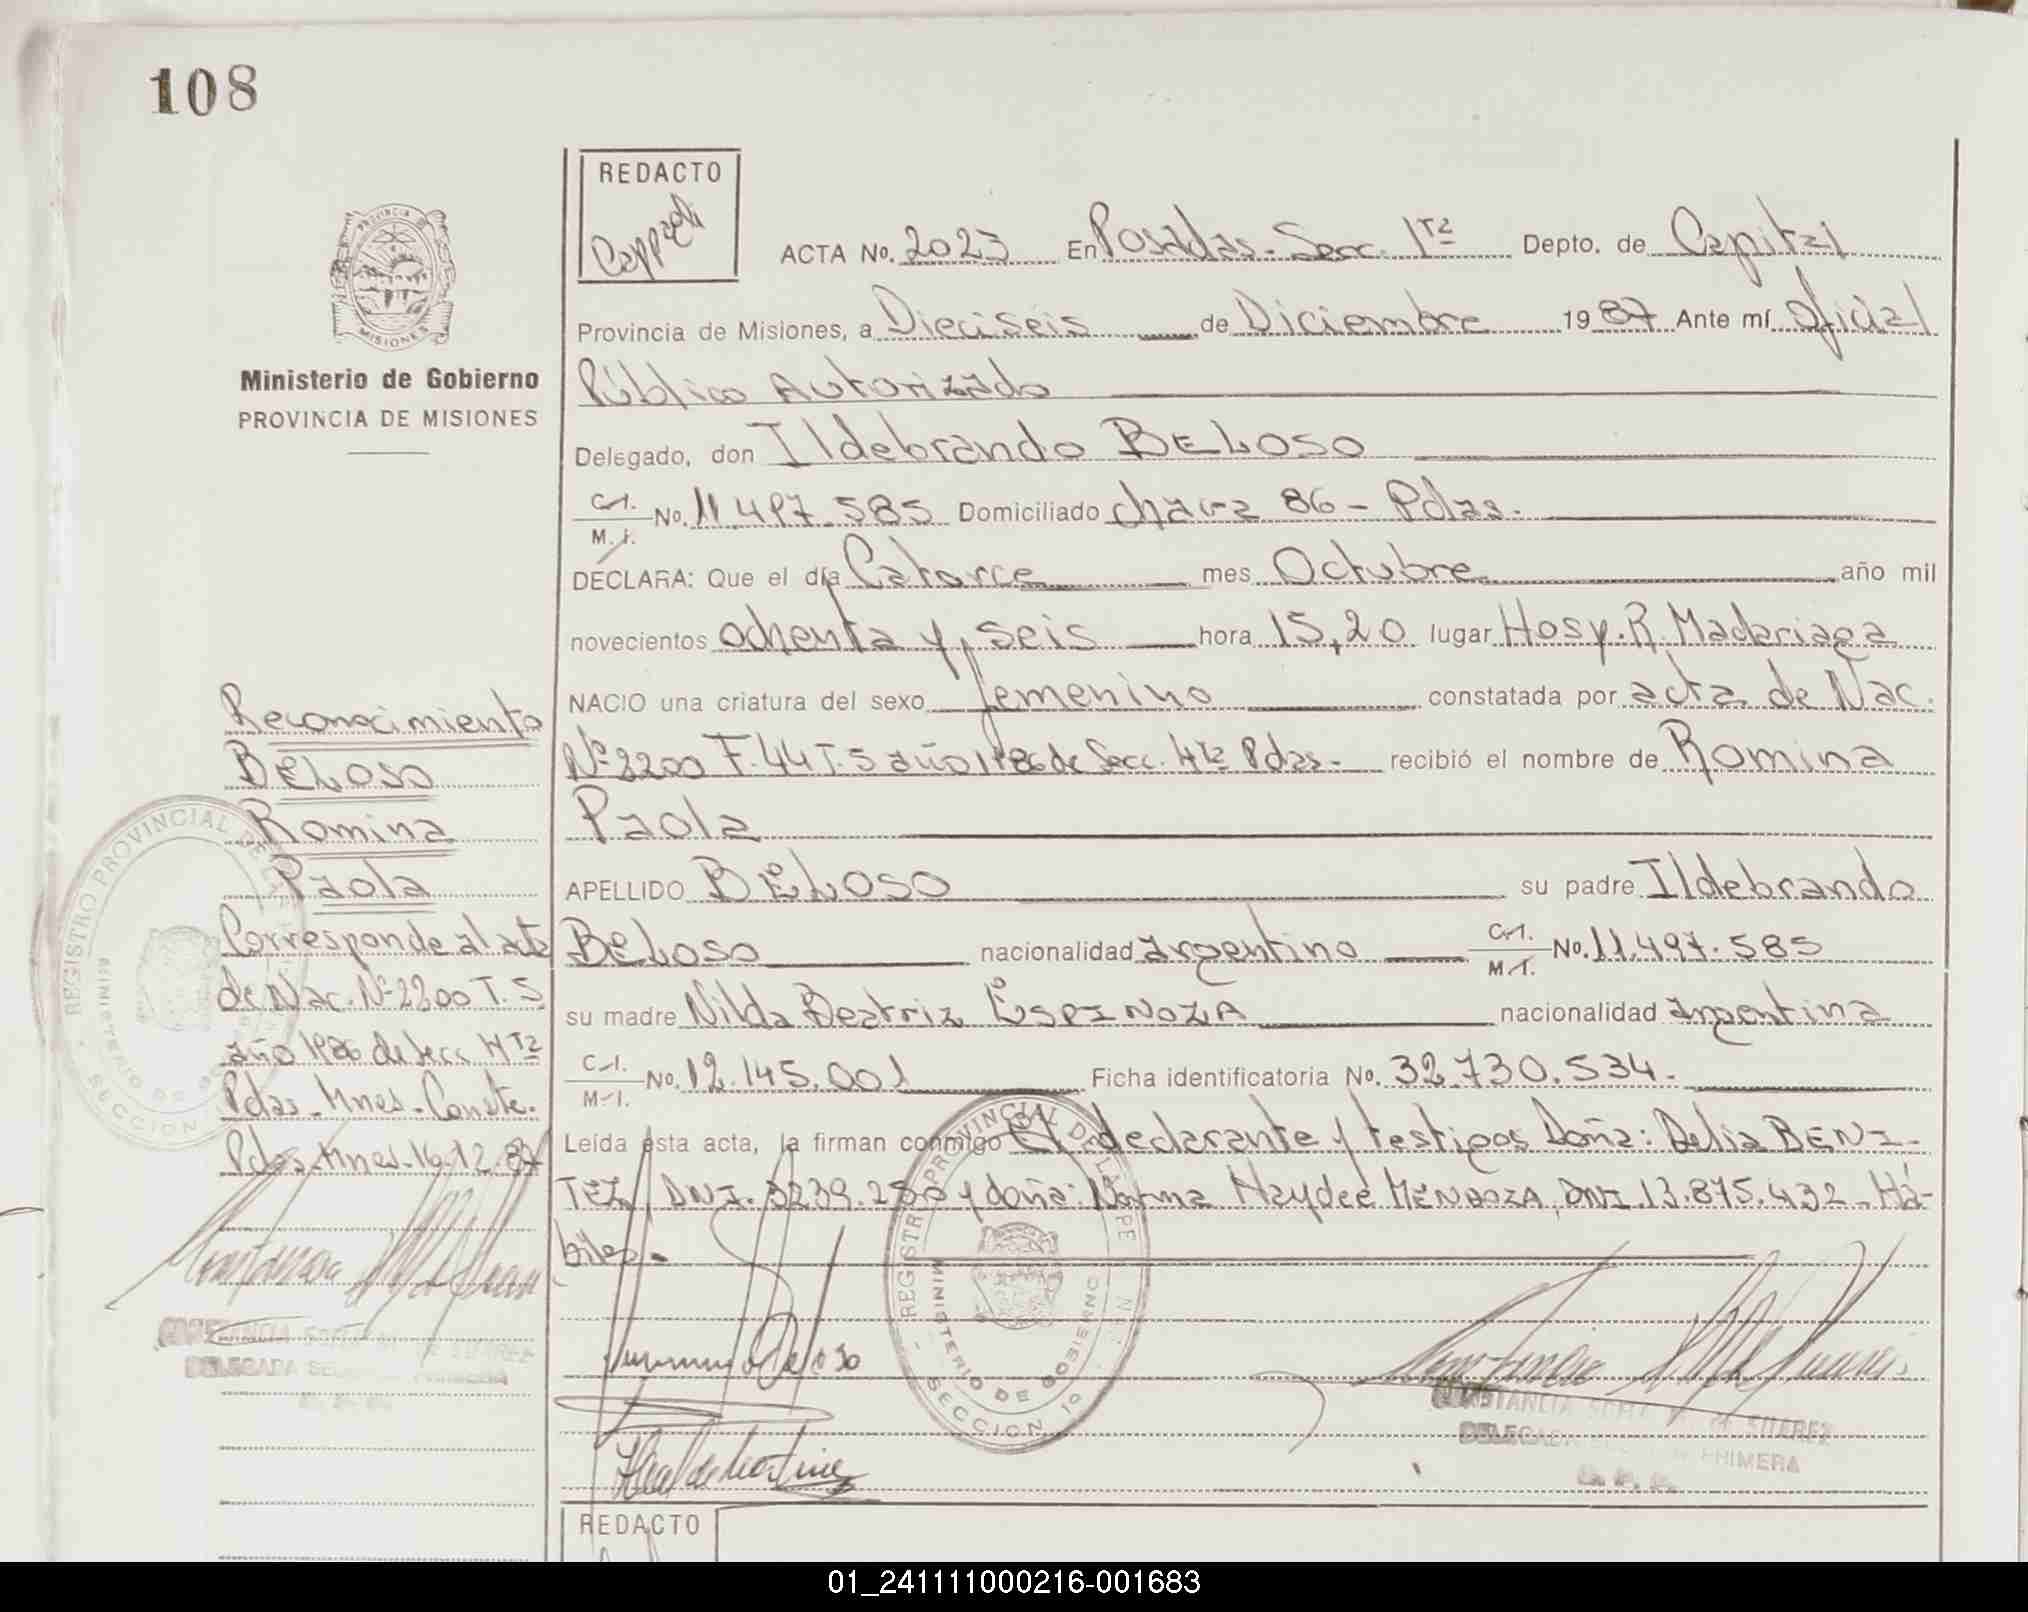 108
REDACTO
ACTA No. 2023 En Posadas - Secc. 1ra Depto. de Capital
Provincia de Misiones, a Dieciseis de Diciembre 1987 Ante mí Oficial
Público Autorizado
Delegado, don Ildebrando BELOSO
C.I.
M. I.
No. 11.497.585 Domiciliado chacra 86 - Pdas.
DECLARA: Que el día Catorce mes Octubre año mil
novecientos ochenta y seis hora 15,20 lugar Hosp. R. Madariaga
NACIO una criatura del sexo femenino constatada por acta de Nac.
Nº 2200 F. 44 T. 5 año 1986 de Secc. 4ta Pdas - recibió el nombre de Romina
Paola
APELLIDO BELOSO su padre Ildebrando
BELOSO nacionalidad argentino C.I. M.I. No. 11.497.585
su madre Nilda Beatriz ESPINOZA nacionalidad argentina
C.I. M.I. No. 12.145.001 Ficha identificatoria No. 32.730.534.-
Leída esta acta, la firman conmigo El declarante y testigos Doña: Delia BENI-
TEZ, DNI. 3239.280 y doña: Norma Haydeé MENDOZA, DNI. 13.875.432 - Há-
biles.-
Ministerio de Gobierno
PROVINCIA DE MISIONES
PROVINCIA DE
MISIONES
Reconocimiento
BELOSO
Romina
Paola
Corresponde al acta
de Nac. Nº 2200 T. 5
año 1986 de Secc 4ta
Pdas - Mnes - Conste.
Pdas - Mnes - 16-12-87
REGISTRO PROVINCIAL DE LA
MINISTERIO DE
SECCION
REGISTRO PROVINCIAL DE LA PE
MINISTERIO DE GOBIERNO
SECCION 1a
CONSTANCIA SOFIA DE SUAREZ
DELEGADA SECCION PRIMERA
CONSTANCIA SOFIA DE SUAREZ
DELEGADA SECCION PRIMERA
REDACTO
01_241111000216-001683